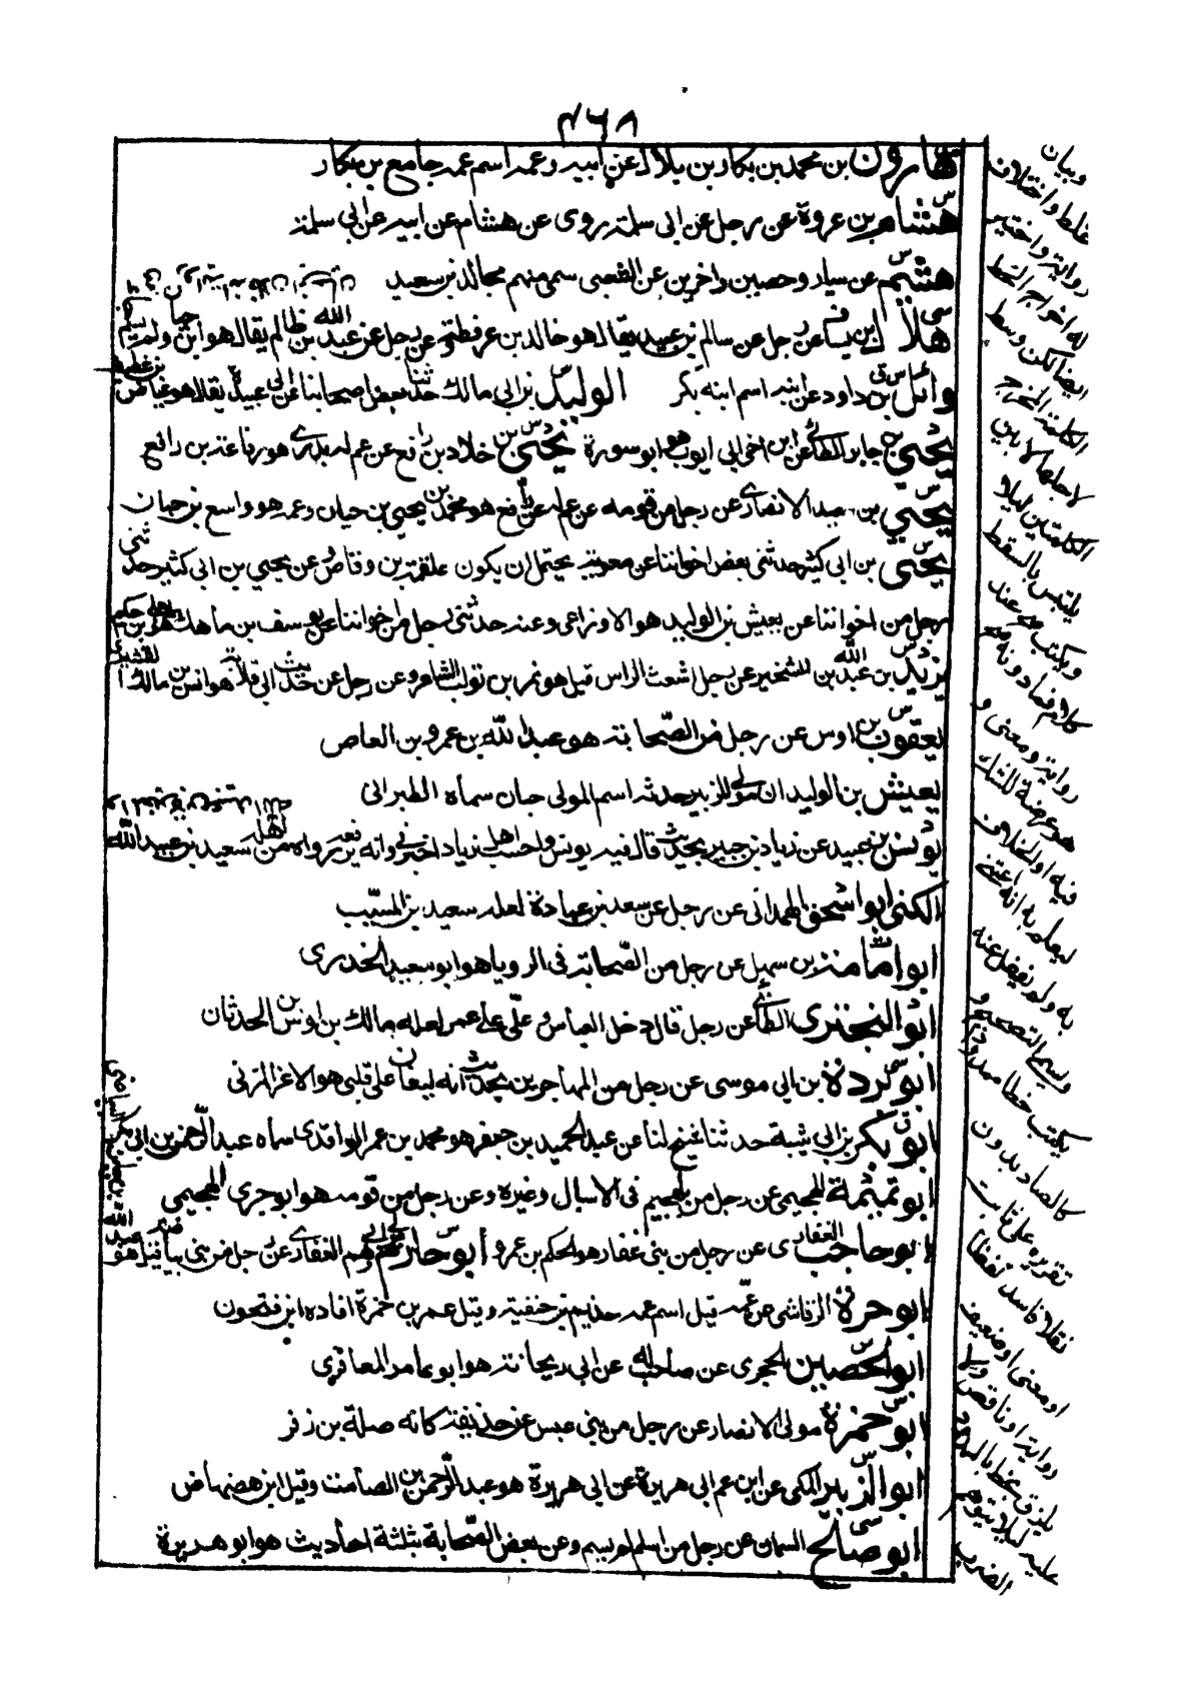 ٤٦٨
هارون بن محمد بن بكار بن بلال عن ابيه وعمه اسم عمه جامع بن بكار
هشام بن عروة عن رجل عن ابي سلمة روى عن هشام عن ابيه عن ابي سلمة
هشيم عن سيار وحصين واخرين عن الشعبي سمى منهم مجالد بن سعيد
هلال بن يساف عن رجل عن سالم بن عبيد يقال هو خالد بن عرفطة وعن رجل عن عبد الله بن ظالم يقال هو ابن حيان ولم يسم
وائل بن داود عن ابنه اسم ابنه بكر الوليد بن ابي مالك حدثنا بعض اصحابنا عن ابي عبيدة يقال هو عياض بن غطيف
يحيى بن جابر الطائي عن ابن اخي ابي ايوب هو ابو سورة يحيى بن خلاد بن رافع عن عم له بدري هو رفاعة بن رافع
يحيى بن سعيد الانصاري عن رجل من قومه عن عمه عن رافع هو محمد بن يحيى بن حيان وعمه هو واسع بن حيان
يحيى بن ابي كثير حدثني بعض اخواننا عن معوية يحتمل ان يكون علقمة بن وقاص عن يحيى بن ابي كثير حدثني
رجل من اخواننا عن يعيش بن الوليد هو الاوزاعي وعنه حدثني رجل من اخواننا عن يوسف بن ماهك هو يعلى بن حكيم
يزيد بن عبد الله بن الشخير عن رجل اشعث الراس قيل هو نمر بن تولب الشاعر وعن رجل عن حديث ابي قلابة هو انس بن مالك القشيري
يعقوب بن اوس عن رجل من الصحابة هو عبد الله بن عمرو بن العاص
يعيش بن الوليد ان مولى للزبير حدثه اسم المولى حبان سماه الطبراني
يونس بن عبيد عن زياد بن جبير بحديث قال فيه يونس واحسب اهل زياد اخبروني وانه رواه من اهله سعيد بن عبيد الله
الكنى ابو اسحق الهمداني عن رجل عن سعد بن عبادة لعله سعيد بن المسيب
ابو امامة بن سهيل عن رجل من الصحابة في الرويا هو ابو سعيد الخدري
ابو البختري الطائي عن رجل قال دخل العباس وعلي على عمر لعله مالك بن اوس بن الحدثان
ابو بردة بن ابي موسى عن رجل من المهاجرين بحديث انه ليغان على قلبي هو الاغر المزني
ابو بكر بن ابي شيبة حدثنا شيخ لنا عن عبد الحميد بن جعفر هو محمد بن عمر الواقدي سماه عبد الرحمن بن ابي
ابو تميمة الهجيمي عن رجل من بلهجيم في الاسبال وغيره وعن رجل من قومه هو ابو جري الهجيمي
ابو حاجب الغفاري عن رجل من بني غفار هو الحكم بن عمرو ابو حازم مولى ابي رهم الغفاري عن رجل من بني بياضة هو عبد الله
ابو حرة الرقاشي عن عمه قيل اسم عمه حذيم بن حنيفة وقيل عمر بن حمزة افاده ابن فتحون
ابو الحصين الحجري عن صاحب له عن ابي ريحانة هو ابو عامر المعافري
ابو حمزة مولى الانصار عن رجل من بني عبس عن حذيفة كانه صلة بن زفر
ابو الزبير المكي عن ابن عم ابي هريرة عن ابي هريرة هو عبد الرحمن بن الصامت وقيل ابن هضهاض
ابو صالح السمان عن رجل من اسلم لم يسم وعن بعض الصحابة بثلثة احاديث هو ابو هريرة
وبيان
غلط واختلاف
رواية واختير
له اخواجر الخط
ايضا لكن وسط
الكلمة المخرج
لاجلها لا بين
الكلمتين ليلا
يلتبس بالسقط
ويكتب صح عند
كلام فساد ونه صح
رواية ومعنى و
هو عرضة للشك
فيه او الخلاف
ليعلم به انه اعتنى
به ولم يغفل عنه
ورسم التصحيح و
يكتب خطا ممدود
كالصاد بدون
تقريره على ثابت
نقلا فاسد لفظا
او معنى او ضعيف
رواية او ناقص
يلزق بخط بالممدود
عليه ليلا يتوهم
الضرب